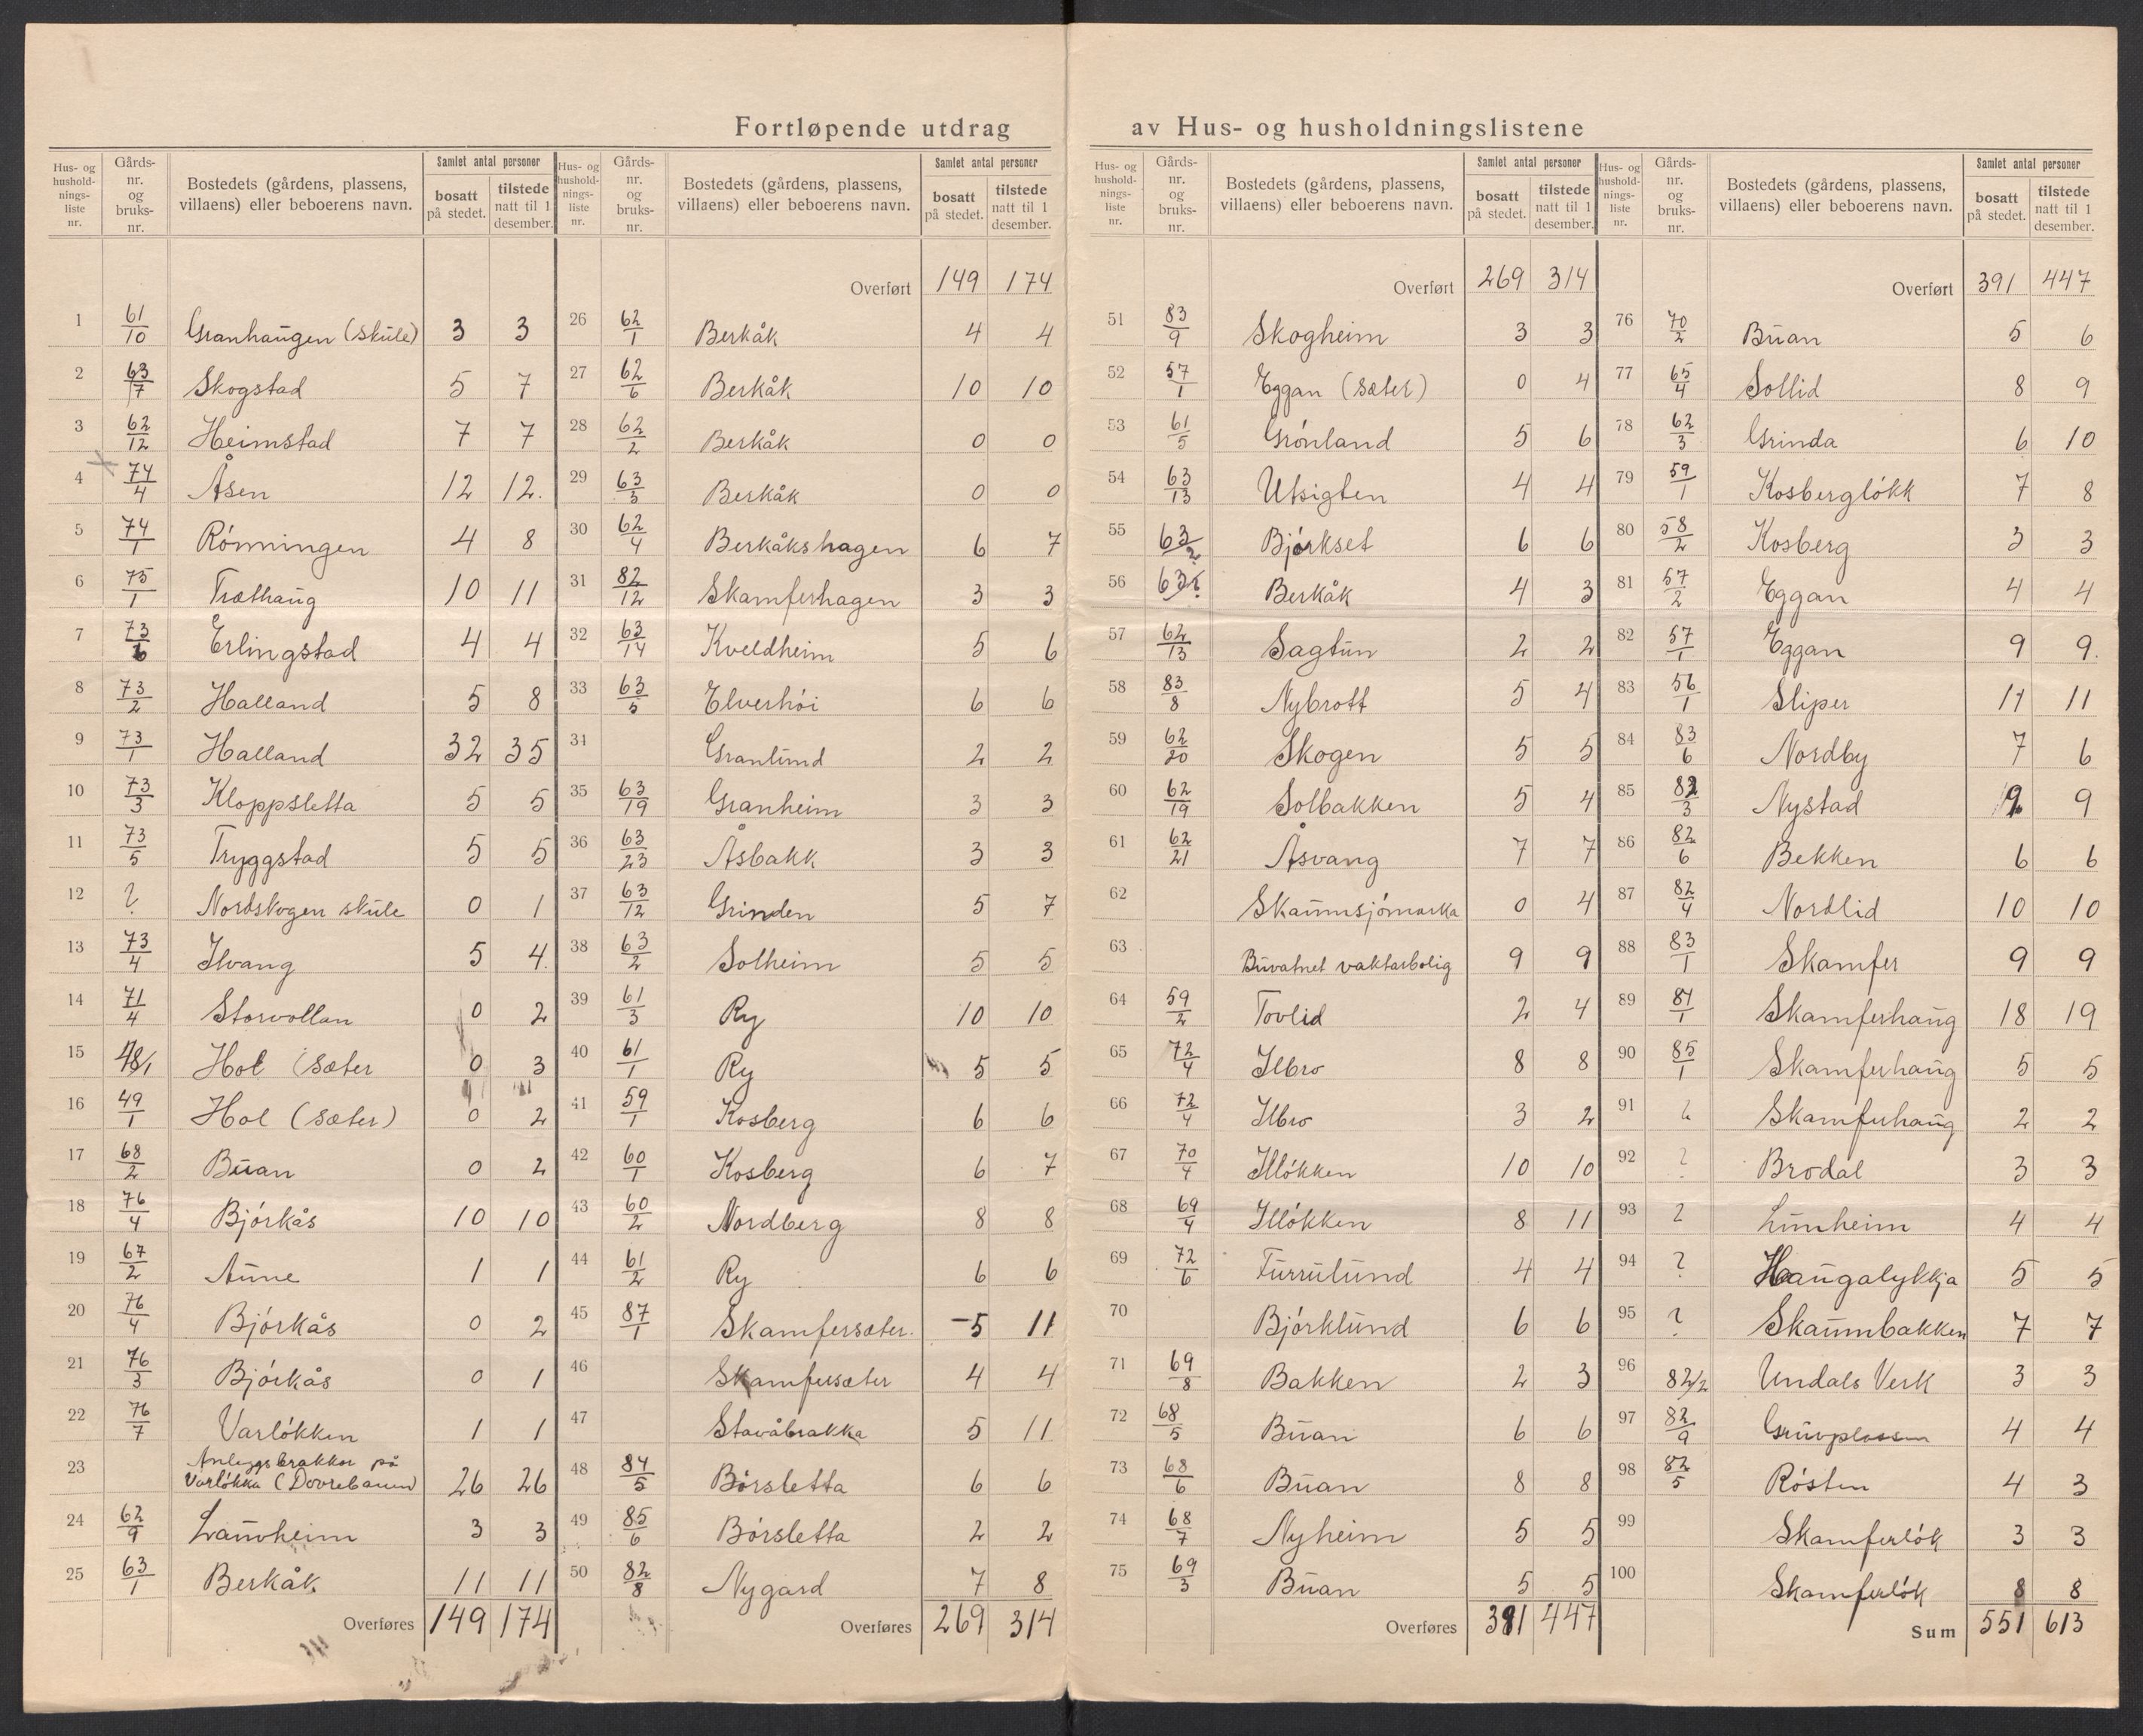 Fortløpende utdrag av Hus- og husholdningslistene
Hus- og husholdningsliste nr. | Gårds- nr. og bruks- nr. | Bostedets (gårdens, plassens, villaens) eller beboerens navn. | Samlet antal personer | bosatt på stedet. | tilstede natt til 1 desember.
1 61/10 Granhaugen (skule) 3 3
2 63/17 Skogstad 5 7
3 62/12 Heimstad 7 7
4 74/4 Åsen 12 12.
5 74/1 Rónningen 4 8
6 75/1 Træthaug 10 11
7 73/6 Erlingstad 4 4
8 73/2 Halland 5 8
9 73/1 Halland 32 35
10 73/3 Kloppsletta 5 5
11 73/5 Tryggstad 5 5
12 ? Nordskogen skule 0 1
13 73/4 Ilvang 5 4.
14 71/4 Storvollan 0 2
15 48/1 Hol (sæter 0 3
16 49/1 Hol (sæter) 0 2
17 68/2 Buan 0 2
18 76/4 Bjórkås 10 10
19 67/2 Aune 1 1
20 76/4 Bjórkås 0 2
21 76/3 Bjórkås 0 1
22 76/7 Varlókken 1 1
23 Anleggsbrakker på
Varlókka (Dovrebanen) 26 26
24 62/9 Lauvheim 3 3
25 63/1 Berkåk 11 11
Overføres 149 174
Hus- og husholdningsliste nr. | Gårds- nr. og bruks- nr. | Bostedets (gårdens, plassens, villaens) eller beboerens navn. | Samlet antal personer | bosatt på stedet. | tilstede natt til 1 desember.
Overført 149 174
26 62/1 Berkåk 4 4
27 62/6 Berkåk 10 10
28 62/2 Berkåk 0 0
29 63/3 Berkåk 0 0
30 62/4 Berkåkshagen 6 7
31 82/12 Skamferhagen 3 3
32 63/14 Kveldheim 5 6
33 63/5 Elverhói 6 6
34 Granlund 2 2
35 63/19 Granheim 3 3
36 63/23 Åsbakk 3 3
37 63/12 Grinden 5 7
38 63/2 Solheim 5 5
39 61/3 Ry 10 10
40 61/1 Ry 5 5
41 59/1 Kosberg 6 6
42 60/1 Kosberg 6 7
43 60/2 Nordberg 8 8
44 61/2 Ry 6 6
45 87/1 Skamfersæter. 5 11
46 Skamfersæter 4 4
47 Stavåbrakka 5 11
48 84/5 Bórsletta 6 6
49 85/6 Bórsletta 2 2
50 82/8 Nygard 7 8
Overføres 269 314
Hus- og husholdningsliste nr. | Gårds- nr. og bruks- nr. | Bostedets (gårdens, plassens, villaens) eller beboerens navn. | Samlet antal personer | bosatt på stedet. | tilstede natt til 1 desember.
Overført 269 314
51 83/9 Skogheim 3 3
52 57/1 Eggan (sæter) 0 4
53 61/5 Grónland 5 6
54 63/13 Utsigten 4 4
55 63/2 Bjórkset 6 6
56 Berkåk 4 3
57 62/13 Sagtun 2 2
58 83/8 Nybrott 5 4
59 62/20 Skogen 5 5
60 62/19 Solbakken 5 4
61 62/21 Åsvang 7 7
62 Skaumsjómarka 0 4
63 Buvatnet vaktarbolig 9 9
64 59/2 Tovlid 2 4
65 72/4 Ilbro 8 8
66 72/4 Ilbro 3 2
67 70/4 Illókken 10 10
68 69/4 Illókken 8 11
69 72/6 Furrulund 4 4
70 Bjórklund 6 6
71 69/8 Bakken 2 3
72 68/5 Buan 6 6
73 68/6 Buan 8 8
74 68/7 Nyheim 5 5
75 69/3 Buan 5 5
Overføres 391 447
Hus- og husholdningsliste nr. | Gårds- nr. og bruks- nr. | Bostedets (gårdens, plassens, villaens) eller beboerens navn. | Samlet antal personer | bosatt på stedet. | tilstede natt til 1 desember.
Overført 391 447
76 70/2 Buan 5 6
77 65/4 Sollid 8 9
78 62/3 Grinda 6 10
79 59/1 Kosberglókk 7 8
80 58/2 Kosberg 3 3
81 57/2 Eggan 4 4
82 57/1 Eggan 9 9.
83 56/1 Sliper 11 11
84 83/6 Nordby 7 6
85 82/3 Nystad 9 9
86 82/6 Bekken 6 6
87 82/4 Nordlid 10 10
88 83/1 Skamfer 9 9
89 81/1 Skamferhaug 18 19
90 85/1 Skamferhaug 5 5
91 ? Skamferhaug 2 2
92 ? Brodal 3 3
93 ? Lunheim 4 4
94 ? Haugalykkja 5 5
95 ? Skaumbakken 7 7
96 82/2 Undals Verk 3 3
97 82/9 Gruvplassen 4 4
98 82/5 Rósten 4 3
99 Skamferlók 3 3
100 Skamferlók 8 8
Sum 551 613